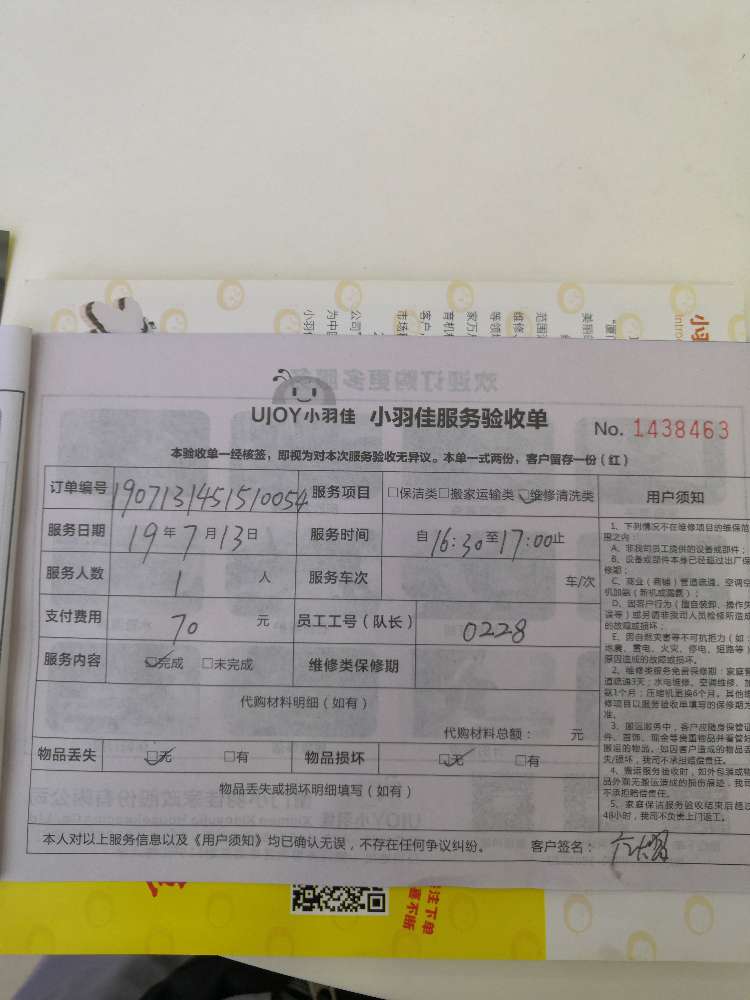 UJOY小羽佳 小羽佳服务验收单 No. 1438463
本验收单一经核签，即视为对本次服务验收无异议。本单一式两份，客户留存一份（红）
订单编号 1907131451510054 服务项目 □保洁类□搬家运输类☑维修清洗类 用户须知
服务日期 19年7月13日 服务时间 自16:30至17:00止
服务人数 1 人 服务车次 车/次
支付费用 70 元 员工工号（队长） 0228
服务内容 ☑完成 □未完成 维修类保修期
代购材料明细（如有）
代购材料总额： 元
物品丢失 ☑无 □有 物品损坏 ☑无 □有
物品丢失或损坏明细填写（如有）
本人对以上服务信息以及《用户须知》均已确认无误，不存在任何争议纠纷。 客户签名：
1、下列情况不在维修项目的维保范
围之内：
A、非我司员工提供的设备或部件；
B、设备或部件本身已经超过出厂保
修期；
C、商业（商铺）管道疏通，空调空
机加氨（新机或漏氨）；
D、因客户行为（擅自装卸、操作失
误等）或另请非我司人员检修所造成
的故障或损坏；
E、因自然灾害等不可抗拒力（如：
地震、雷电、火灾、停电、短路等）
原因造成的故障或损坏。
2、维修类服务免费保修期：家庭管
道疏通3天；水电维修、空调维修、加
氨1个月；压缩机更换6个月。其他维
修项目以服务验收单填写的保修期为
准。
3、搬运服务中，客户应随身保管证
件、首饰、现金等贵重物品并看管好
搬运的物品。如因客户造成的物品丢
失/损坏，我司不承担赔偿责任。
4、搬运服务验收时，如外包装或物
品外观无搬运造成的损伤痕迹，我司
不承担赔偿责任。
5、家庭保洁服务验收结束后超过
48小时，我司不负责上门返工。
注下单
惠不断